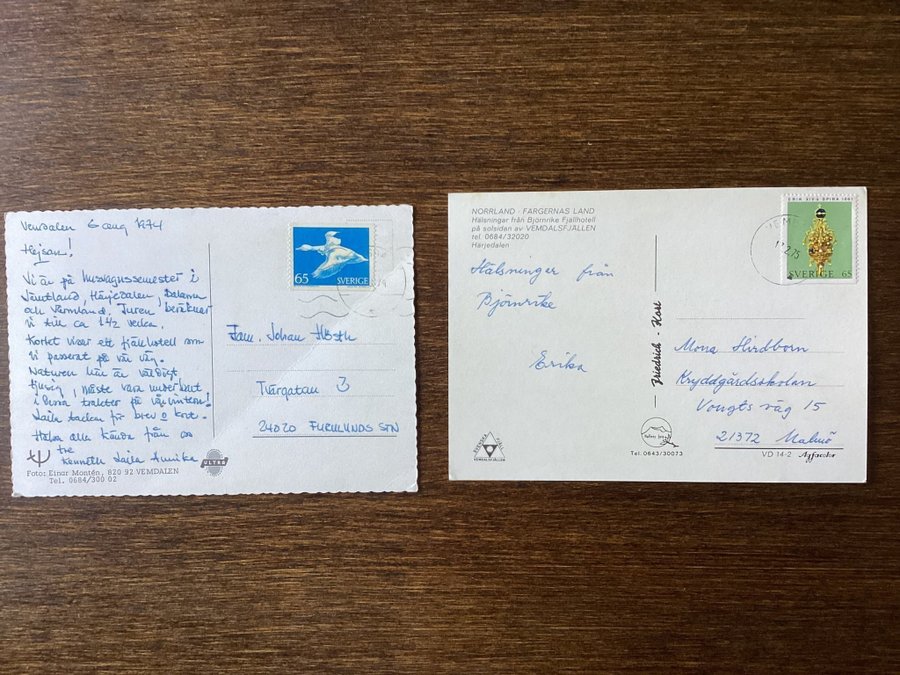 Vemdalen 6 aug 1974
Hejsan!
Vi är på husvagnssemester i
Jämtland, Härjedalen, Dalarna
och Värmland. Turen beräknar
vi till ca 1 1/2 vecka.
Kortet visar ett fjällhotell som
vi passerat på vår väg.
Naturen här är väldigt
tjusig, måste vara underbart
i dessa trakter på vårvintern!
Laila tackar för brev o kort.
Hälsa alla kända från oss
tre
Kenneth Laila Annika
Foto: Einar Montén, 820 92 VEMDALEN
Tel. 0684/300 02
ULTRA
65 SVERIGE
Fam. Johan
Tvärgatan 3
24020 FURULUNDS STN
NORRLAND - FÄRGERNAS LAND
Hälsningar från Björnrike Fjällhotell
på solsidan av VEMDALSFJÄLLEN
tel. 0684/32020
Härjedalen
Hälsningar från
Björnrike
Erika
VEMDALSFJÄLLEN
Friedrich - Kort
Tel. 0643/30073
ERIK XIV:S SPIRA 1561
SVERIGE 65
12.2.75
Mona Hirdborn
Kryddgårdsskolan
Vougts väg 15
21372 Malmö
VD 14-2